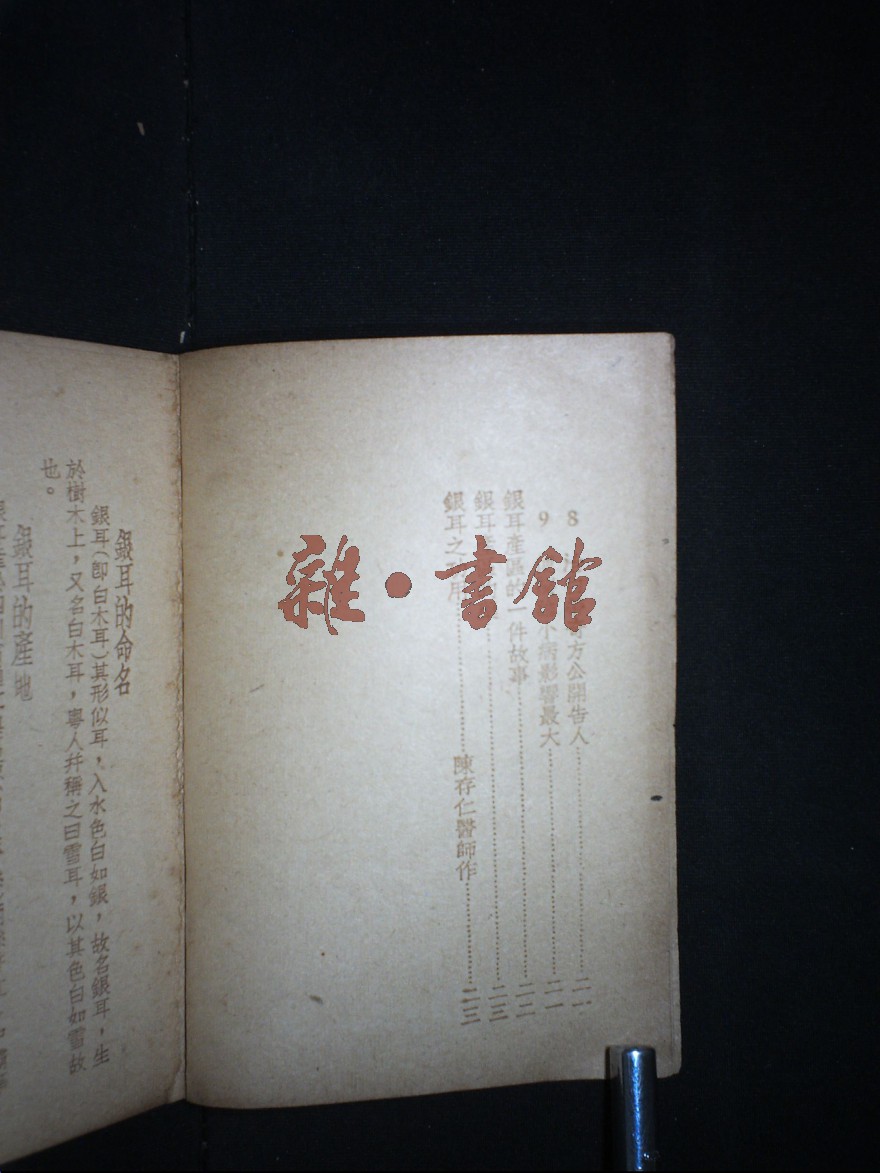 8 方公開告人……二一
9 不病影響最大……二一
銀耳產區的一件故事……二二
銀耳……二三
銀耳之 用……陳存仁醫師作……二三
雜・書館
銀耳的命名
銀耳(即白木耳)其形似耳,入水色白如銀,故名銀耳,生
於樹木上,又名白木耳,粵人幷稱之曰雪耳,以其色白如雪故
也。
銀耳的產地